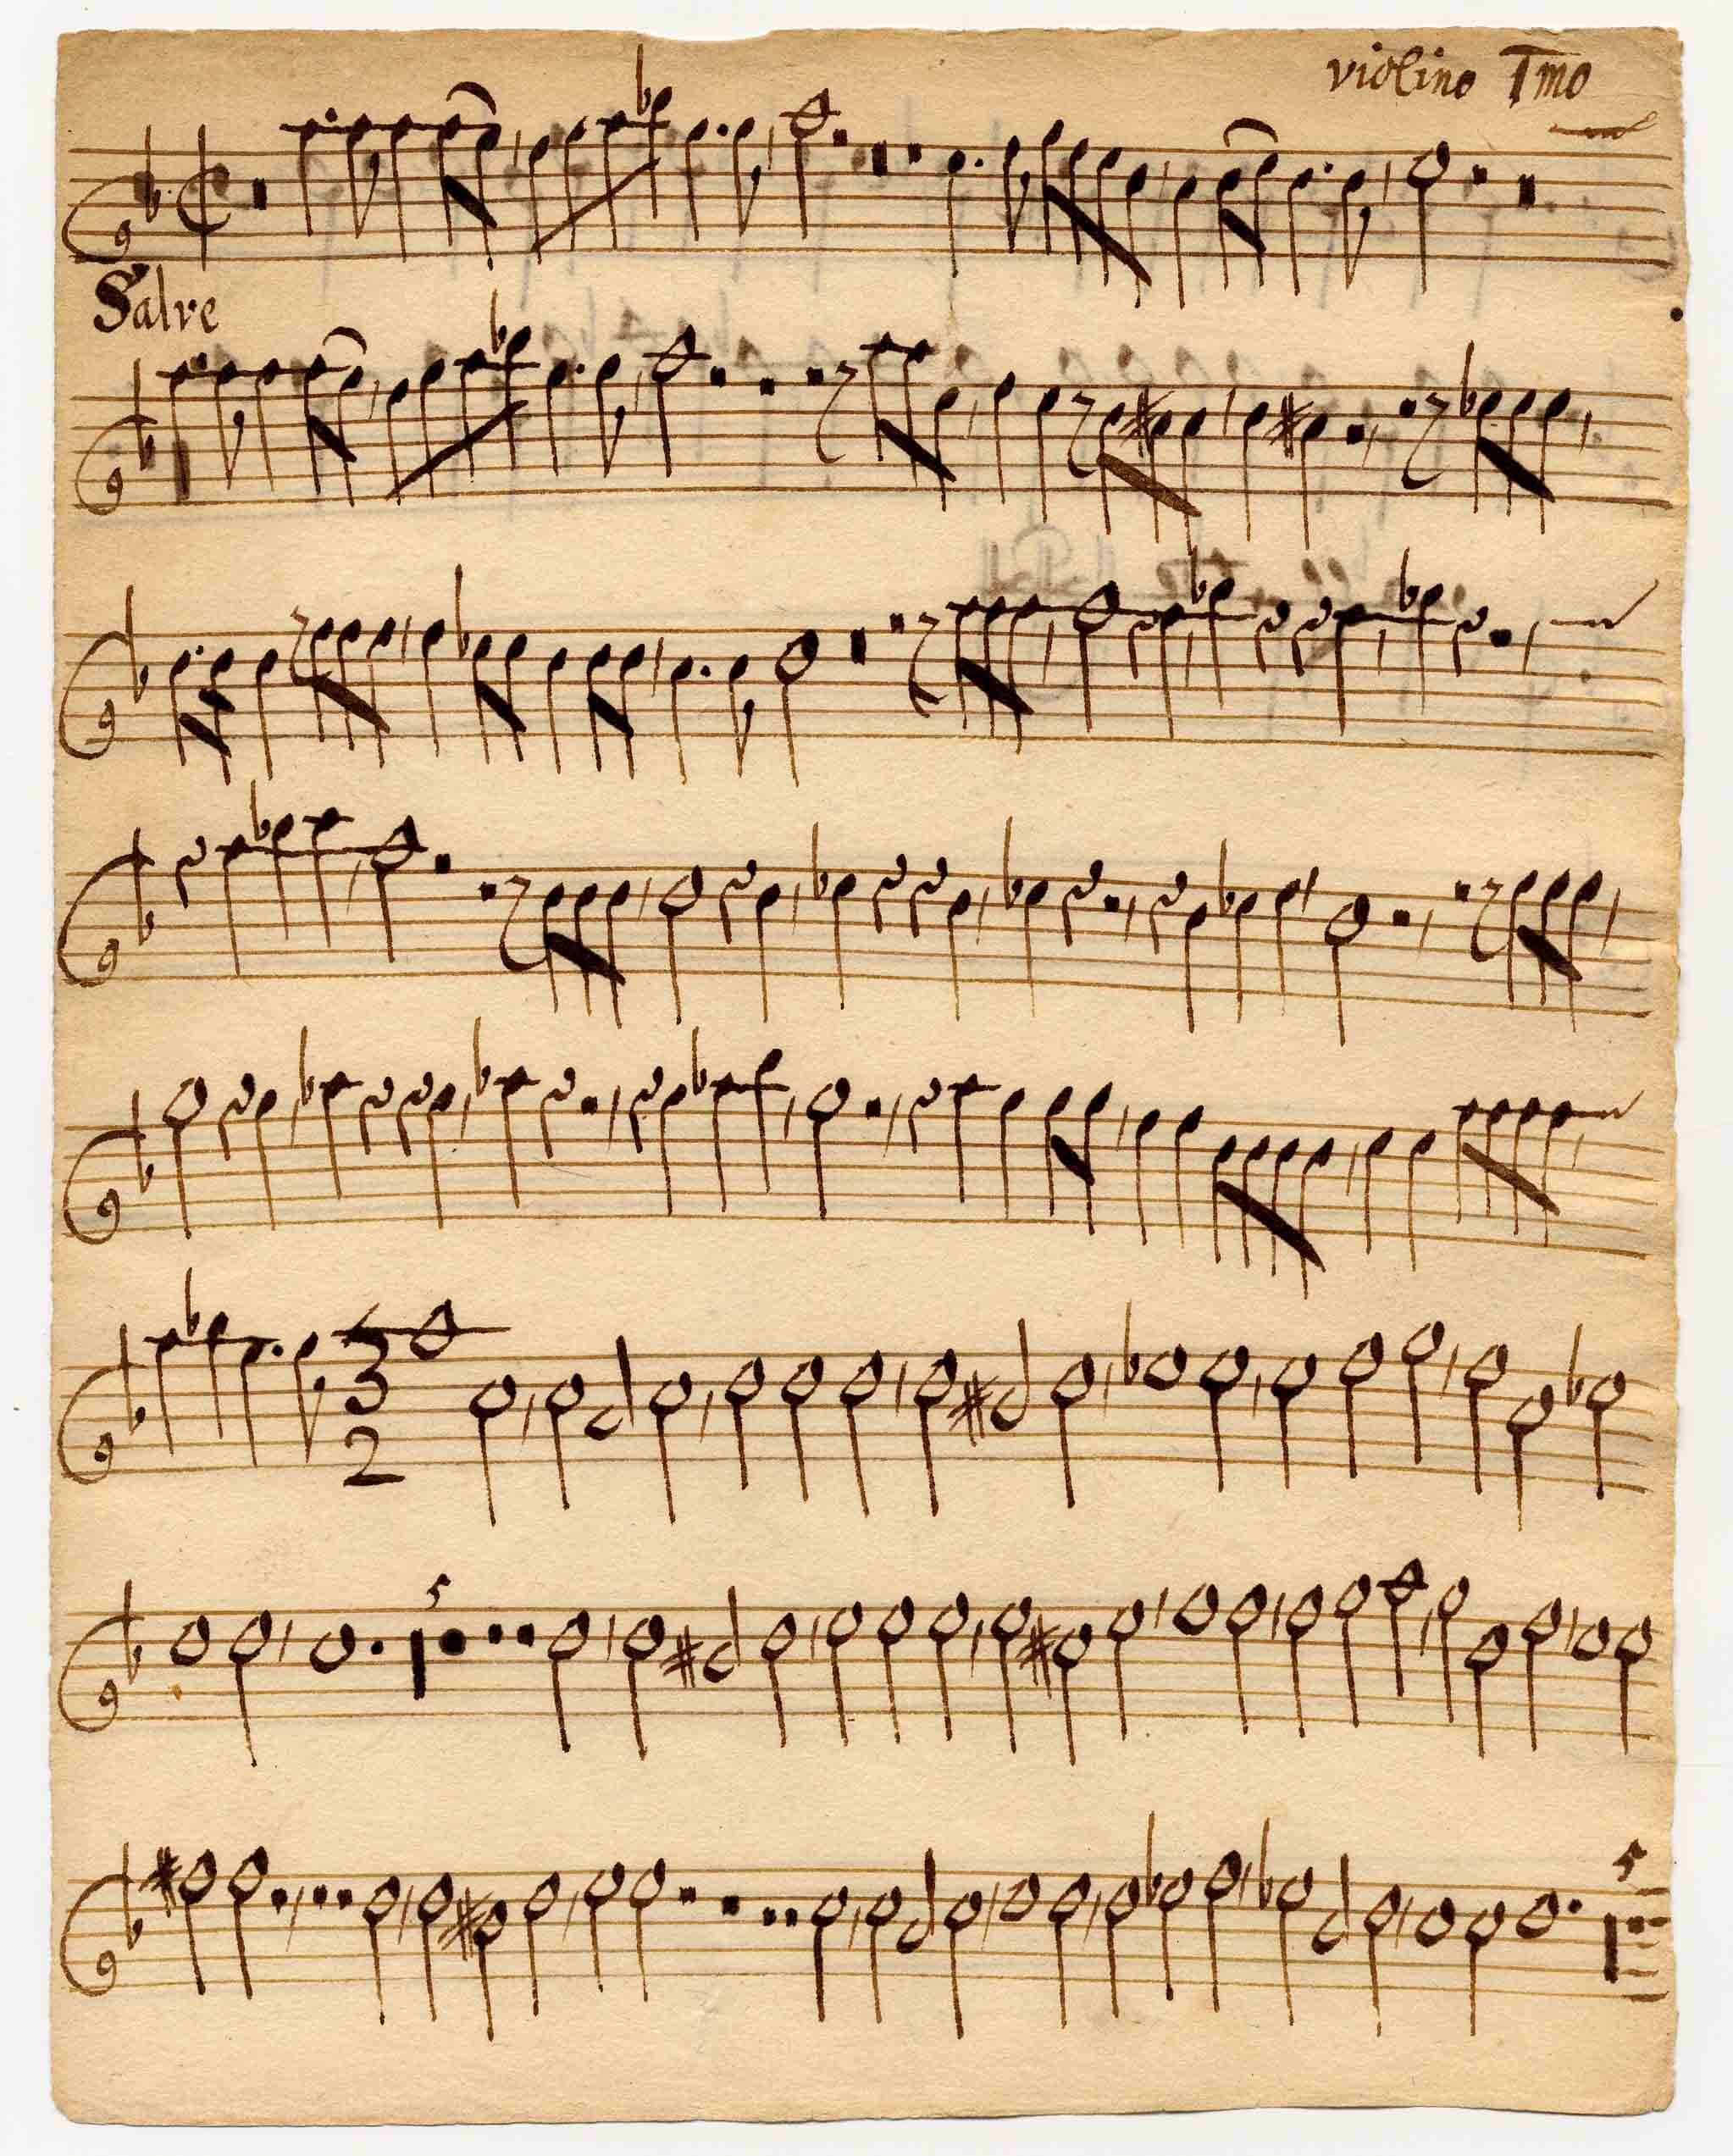 violino Tmo
Salve
3
2
5
5